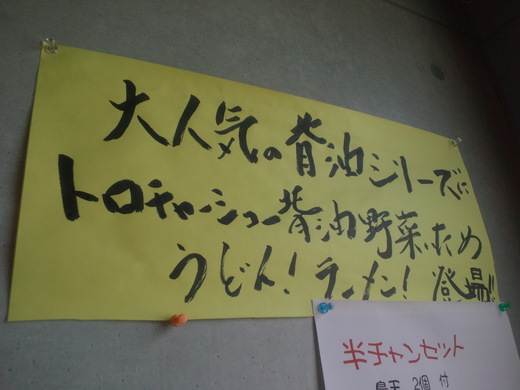 大人気の背油シリーズに
トロチャーシュー背油野菜ため
うどん!ラーメン!登場!!
半チャンセット
2個 付